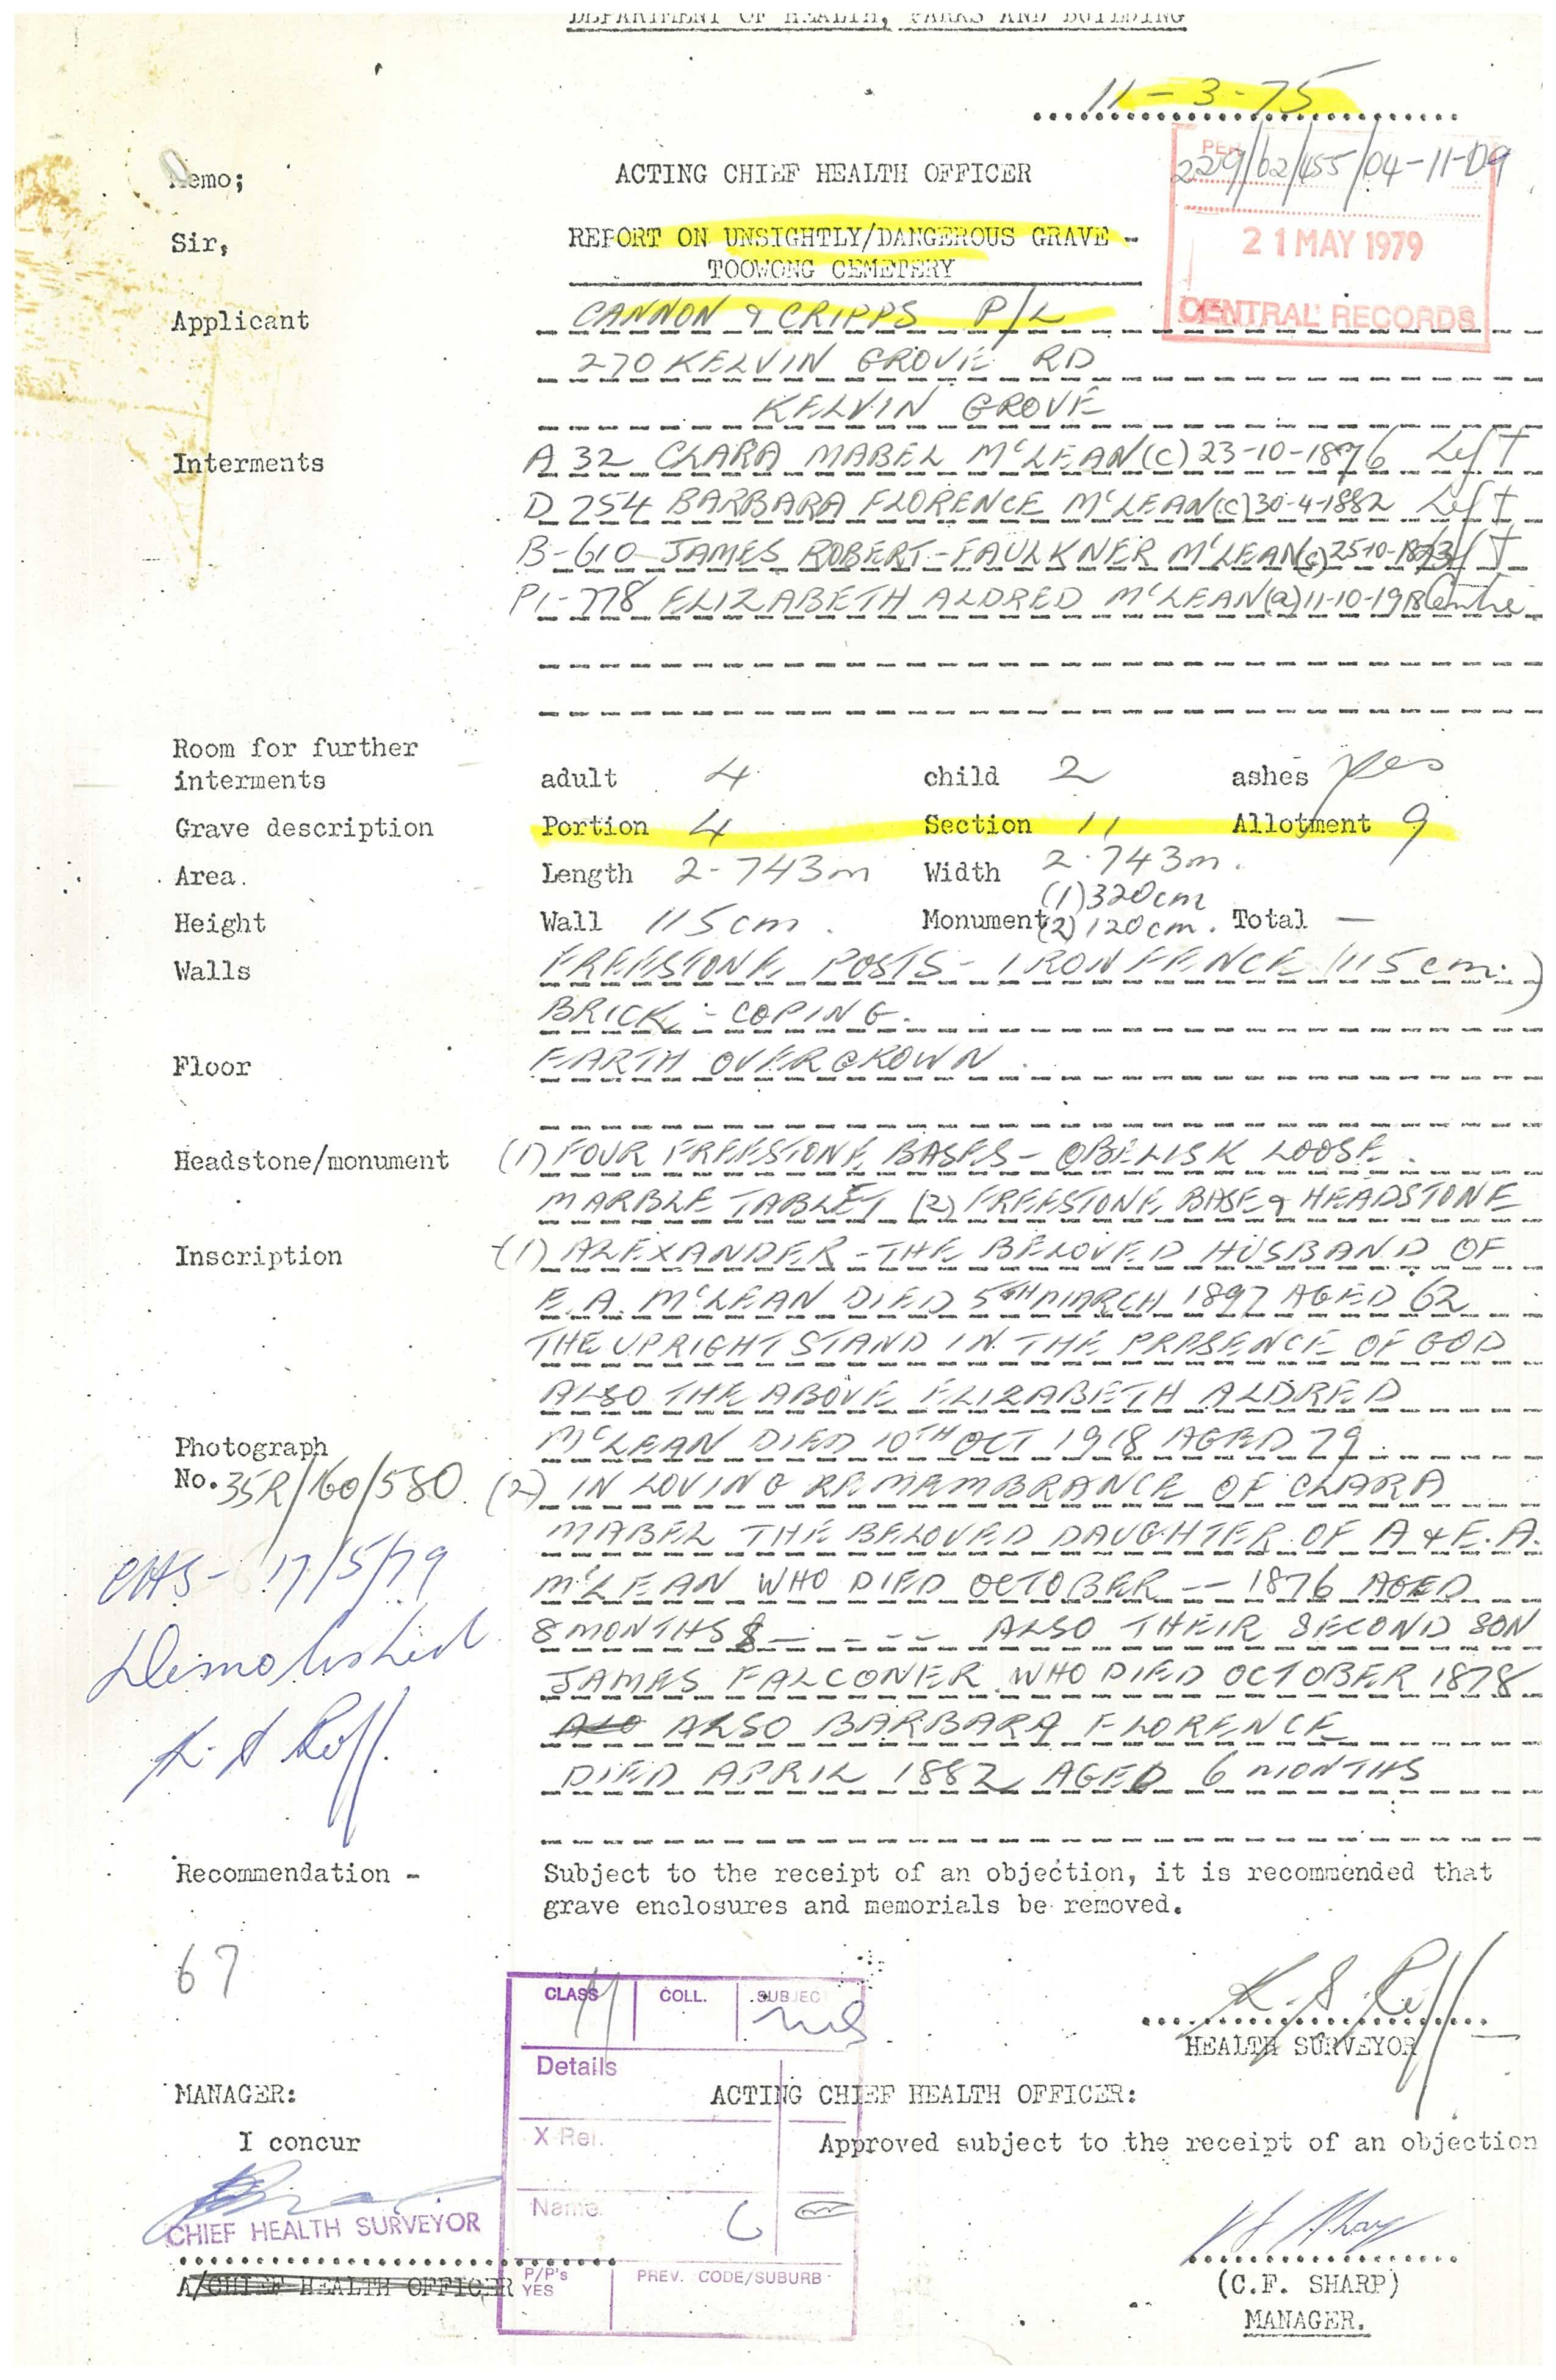 DEPARTMENT OF HEALTH, PARKS AND BUILDING
11-3-75
Memo;
ACTING CHIEF HEALTH OFFICER
PER
229/62/455/04-11-09
Sir,
REPORT ON UNSIGHTLY/DANGEROUS GRAVE -
TOOWONG CEMETERY
21 MAY 1979
CENTRAL RECORDS
Applicant CANNON & CRIPPS P/L
270 KELVIN GROVE RD
KELVIN GROVE
Interments A 32 CLARA MABEL McLEAN (c) 23-10-1876 Left
D 754 BARBARA FLORENCE McLEAN (c) 30-4-1882 Left
B-610 JAMES ROBERT-FAULKNER McLEAN (c) 25-10-
P1-778 ELIZABETH ALDRED McLEAN (a) 11-10-1918 Centre
Room for further
interments adult 4 child 2 ashes yes
Grave description Portion 4 Section 11 Allotment 9
Area. Length 2.743m Width 2.743m.
(1) 320cm
Height Wall 115cm. Monument (2) 120cm. Total —
Walls FREESTONE POSTS - IRON FENCE (115cm.)
BRICK - COPING.
Floor EARTH OVERGROWN.
Headstone/monument (1) FOUR FREESTONE BASES - OBELISK LOOSE.
MARBLE TABLET (2) FREESTONE BASE & HEADSTONE
Inscription (1) ALEXANDER - THE BELOVED HUSBAND OF
E.A. McLEAN DIED 5TH MARCH 1897 AGED 62
THE UPRIGHT STAND IN THE PRESENCE OF GOD
ALSO THE ABOVE ELIZABETH ALDRED
McLEAN DIED 10TH OCT 1918 AGED 79
Photograph
No. 35R/160/580 (2) IN LOVING REMEMBRANCE OF CLARA
MABEL THE BELOVED DAUGHTER OF A & E.A.
McLEAN WHO DIED OCTOBER -- 1876 AGED
8 MONTHS & - - - - ALSO THEIR SECOND SON
JAMES FALCONER WHO DIED OCTOBER 1878
ALSO ALSO BARBARA FLORENCE
DIED APRIL 1882 AGED 6 MONTHS
17/5/79
Demolished
K. S Roff.
Recommendation - Subject to the receipt of an objection, it is recommended that
grave enclosures and memorials be removed.
67
K. S. Roff
HEALTH SURVEYOR
CLASS COLL. SUBJECT
Details
X Ref.
Name
P/P's
YES
PREV. CODE/SUBURB
MANAGER: ACTING CHIEF HEALTH OFFICER:
I concur Approved subject to the receipt of an objection
CHIEF HEALTH SURVEYOR
A/CHIEF HEALTH OFFICER
(C.F. SHARP)
MANAGER.